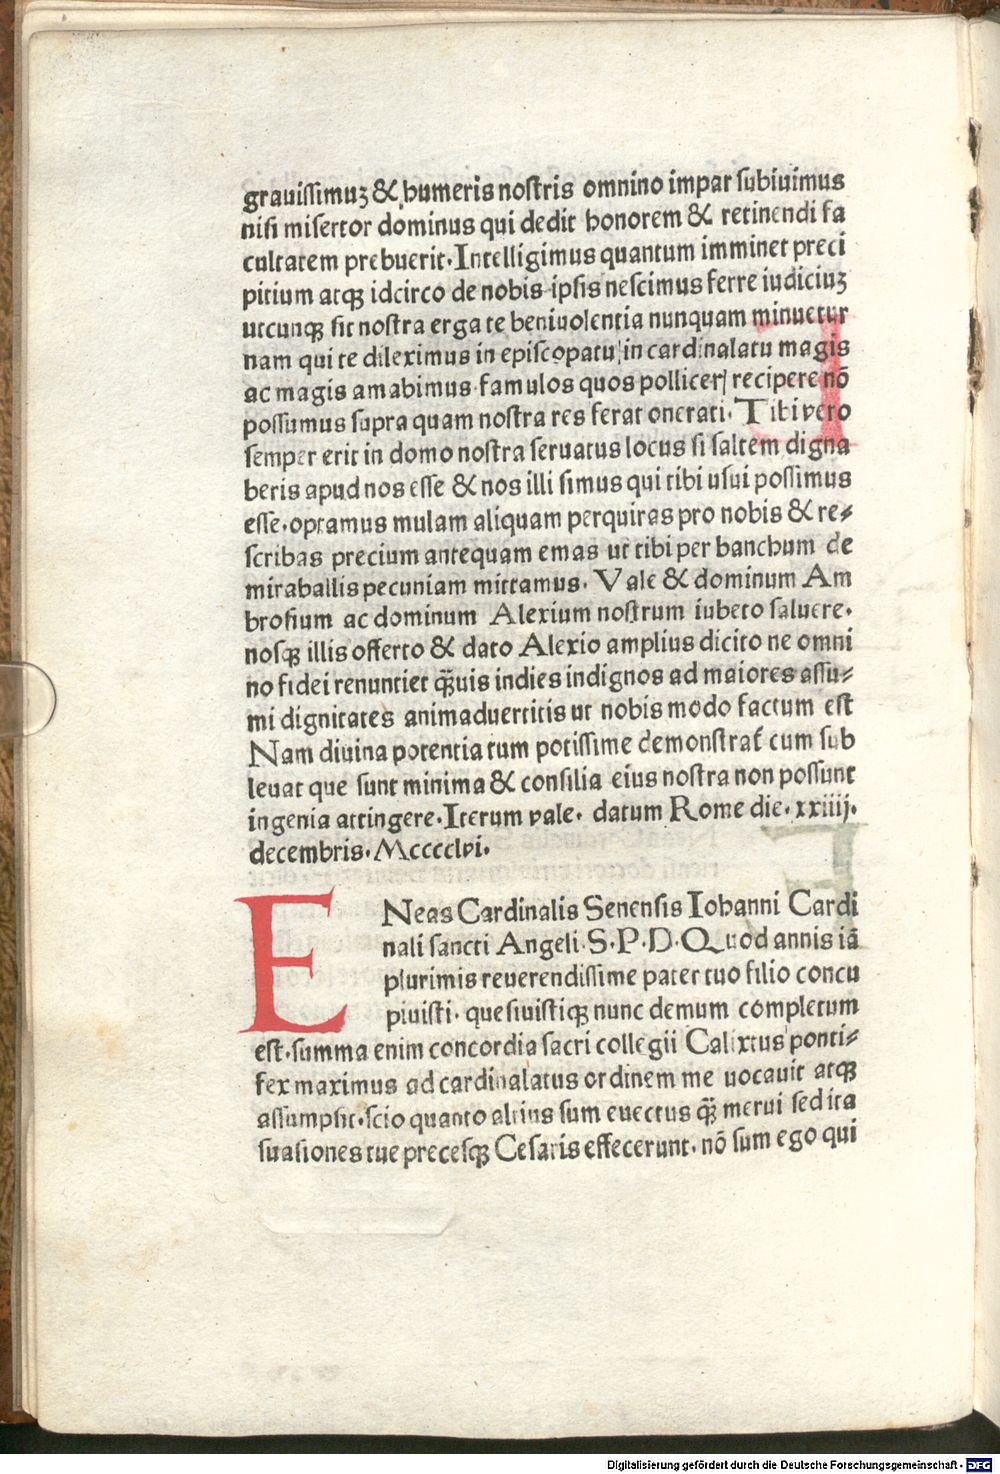 grauissimuꝫ & humeris nostris omnino impar subiuimus
nisi misertor dominus qui dedit honorem & retinendi fa
cultatem prebuerit. Intelligimus quantum imminet preci
pitium atqꝫ idcirco de nobis ipsis nescimus ferre iudiciuꝫ
utcunqꝫ sit nostra erga te beniuolentia nunquam minuetur
nam qui te dileximus in episcopatu in cardinalatu magis
ac magis amabimus. famulos quos pollicerj recipere nō
possumus supra quam nostra res ferat onerati. Tibi vero
semper erit in domo nostra seruatus locus si saltem digna
beris apud nos esse & nos illi simus qui tibi usui possimus
esse. optamus mulam aliquam perquiras pro nobis & re-
scribas precium antequam emas ut tibi per banchum de
miraballis pecuniam mittamus. Vale & dominum Am
brosium ac dominum Alexium nostrum iubeto saluere.
nosqꝫ illis offerto & dato Alexio amplius dicito ne omni
no fidei renuntiet qȝuis indies indignos ad maiores assu-
mi dignitates animaduertitis ut nobis modo factum est
Nam diuina potentia tum potissime demonstrat̄ cum sub
leuat que sunt minima & consilia eius nostra non possunt
ingenia attingere. Iterum vale. datum Rome die. xxiiij.
decembris. Mcccclvi.
ENeas Cardinalis Senensis Iohanni Cardi
nali sancti Angeli. S. P. D. Quod annis iā
plurimis reuerendissime pater tuo filio concu
piuisti. quesiuistiqꝫ nunc demum completum
est. summa enim concordia sacri collegii Calixtus ponti-
fex maximus ad cardinalatus ordinem me uocauit atqꝫ
assumpsit. scio quanto altius sum euectus qȝ merui sed ita
suasiones tue precesqꝫ Cesaris effecerunt. nō sum ego qui
Digitalisierung gefördert durch die Deutsche Forschungsgemeinschaft - DFG